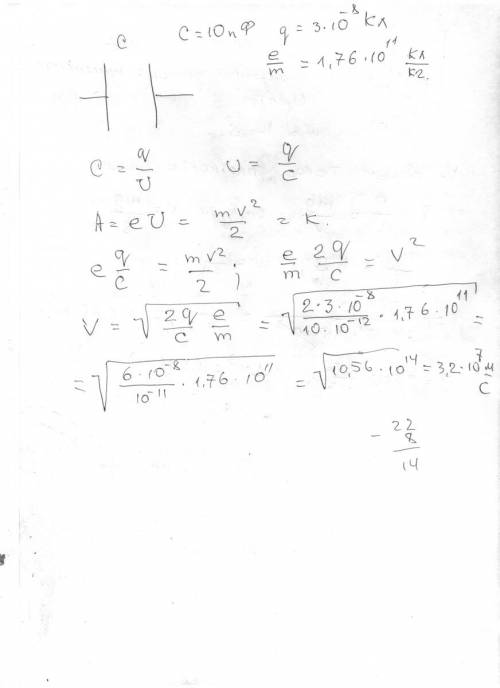 C
C = 10 пФ q = 3·10⁻⁸ Кл
e/m = 1,76·10¹¹ Кл/кг.
C = q/U U = q/C
A = eU = mv²/2 = K.
e q/C = mv²/2 ; e/m 2q/C = V²
V = √(2q/C e/m) = √(2·3·10⁻⁸/10·10⁻¹² · 1,76·10¹¹) =
= √(6·10⁻⁸/10⁻¹¹ · 1,76·10¹¹) = √(10,56·10¹⁴) = 3,2·10⁷ м/с
22
- 8
14